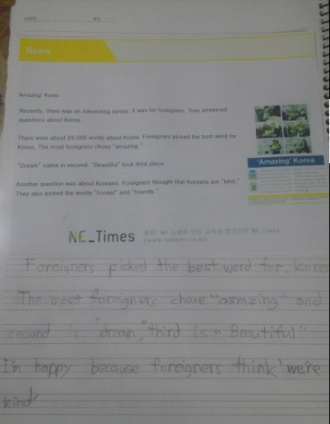 DATE
NO
News
'Amazing' Korea
Recently, there was an interesting survey. It was for foreigners. They answered
questions about Korea.
There were about 25,500 words about Korea. Foreigners picked the best word for
Korea. The most foreigners chose "amazing."
"Dream" came in second. "Beautiful" took third place.
Another question was about Koreans. Foreigners thought that Koreans are "kind."
They also picked the words "honest" and "friendly."
'Amazing' Korea
NE_Times
Foreigners picked the best word for. korea
The most foreigners chose "amazing" and
second is "dream," third is "Beautiful"
I'm happy because foreigners think we're
kind